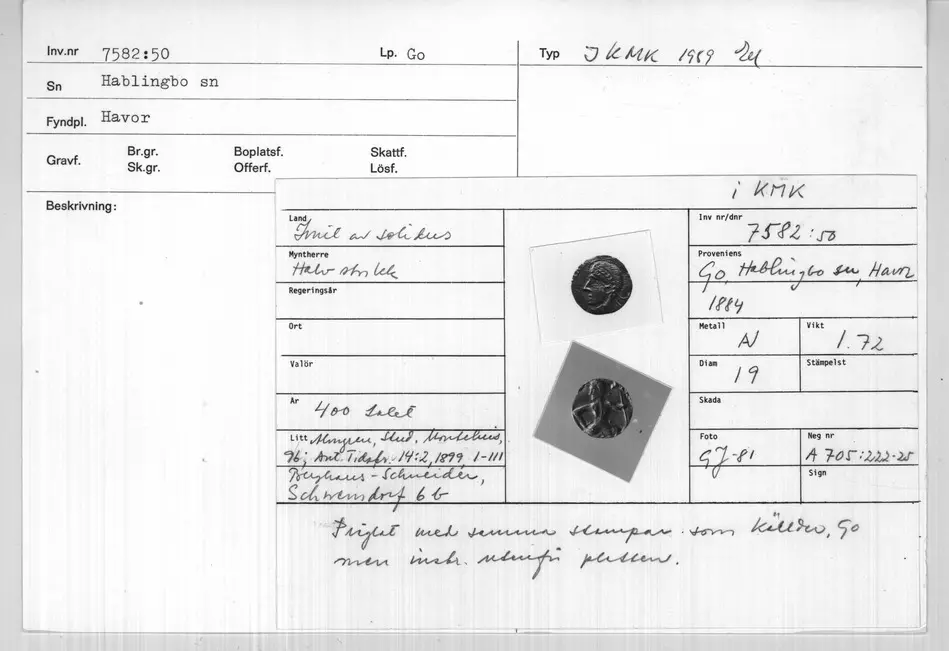 Inv.nr 7582:50 Lp. Go
Typ I KMK 1989
Sn Hablingbo sn
Fyndpl. Havor
Gravf. Br.gr. Boplatsf. Skattf.
Sk.gr. Offerf. Lösf.
Beskrivning:
i KMK
Land
Imit av solidus
Myntherre
Halv
Regeringsår
Ort
Valör
År 400 talet
Litt Almgren, Stud. Montelius,
96; Ant. Tidskr. 14:2, 1899, 1-111
Berghaus-Schneider,
Schwensdorf 6 b
Inv nr/dnr
7582:50
Proveniens
Go, Hablingbo sn, Havor
1884
Metall AV
Vikt 1.72
Diam 19
Stämpelst
Skada
Foto GJ-81
Neg nr A 705:222-25
Sign
Präglat med samma stampar som Källder, Go
men inskr. utanför plattan.